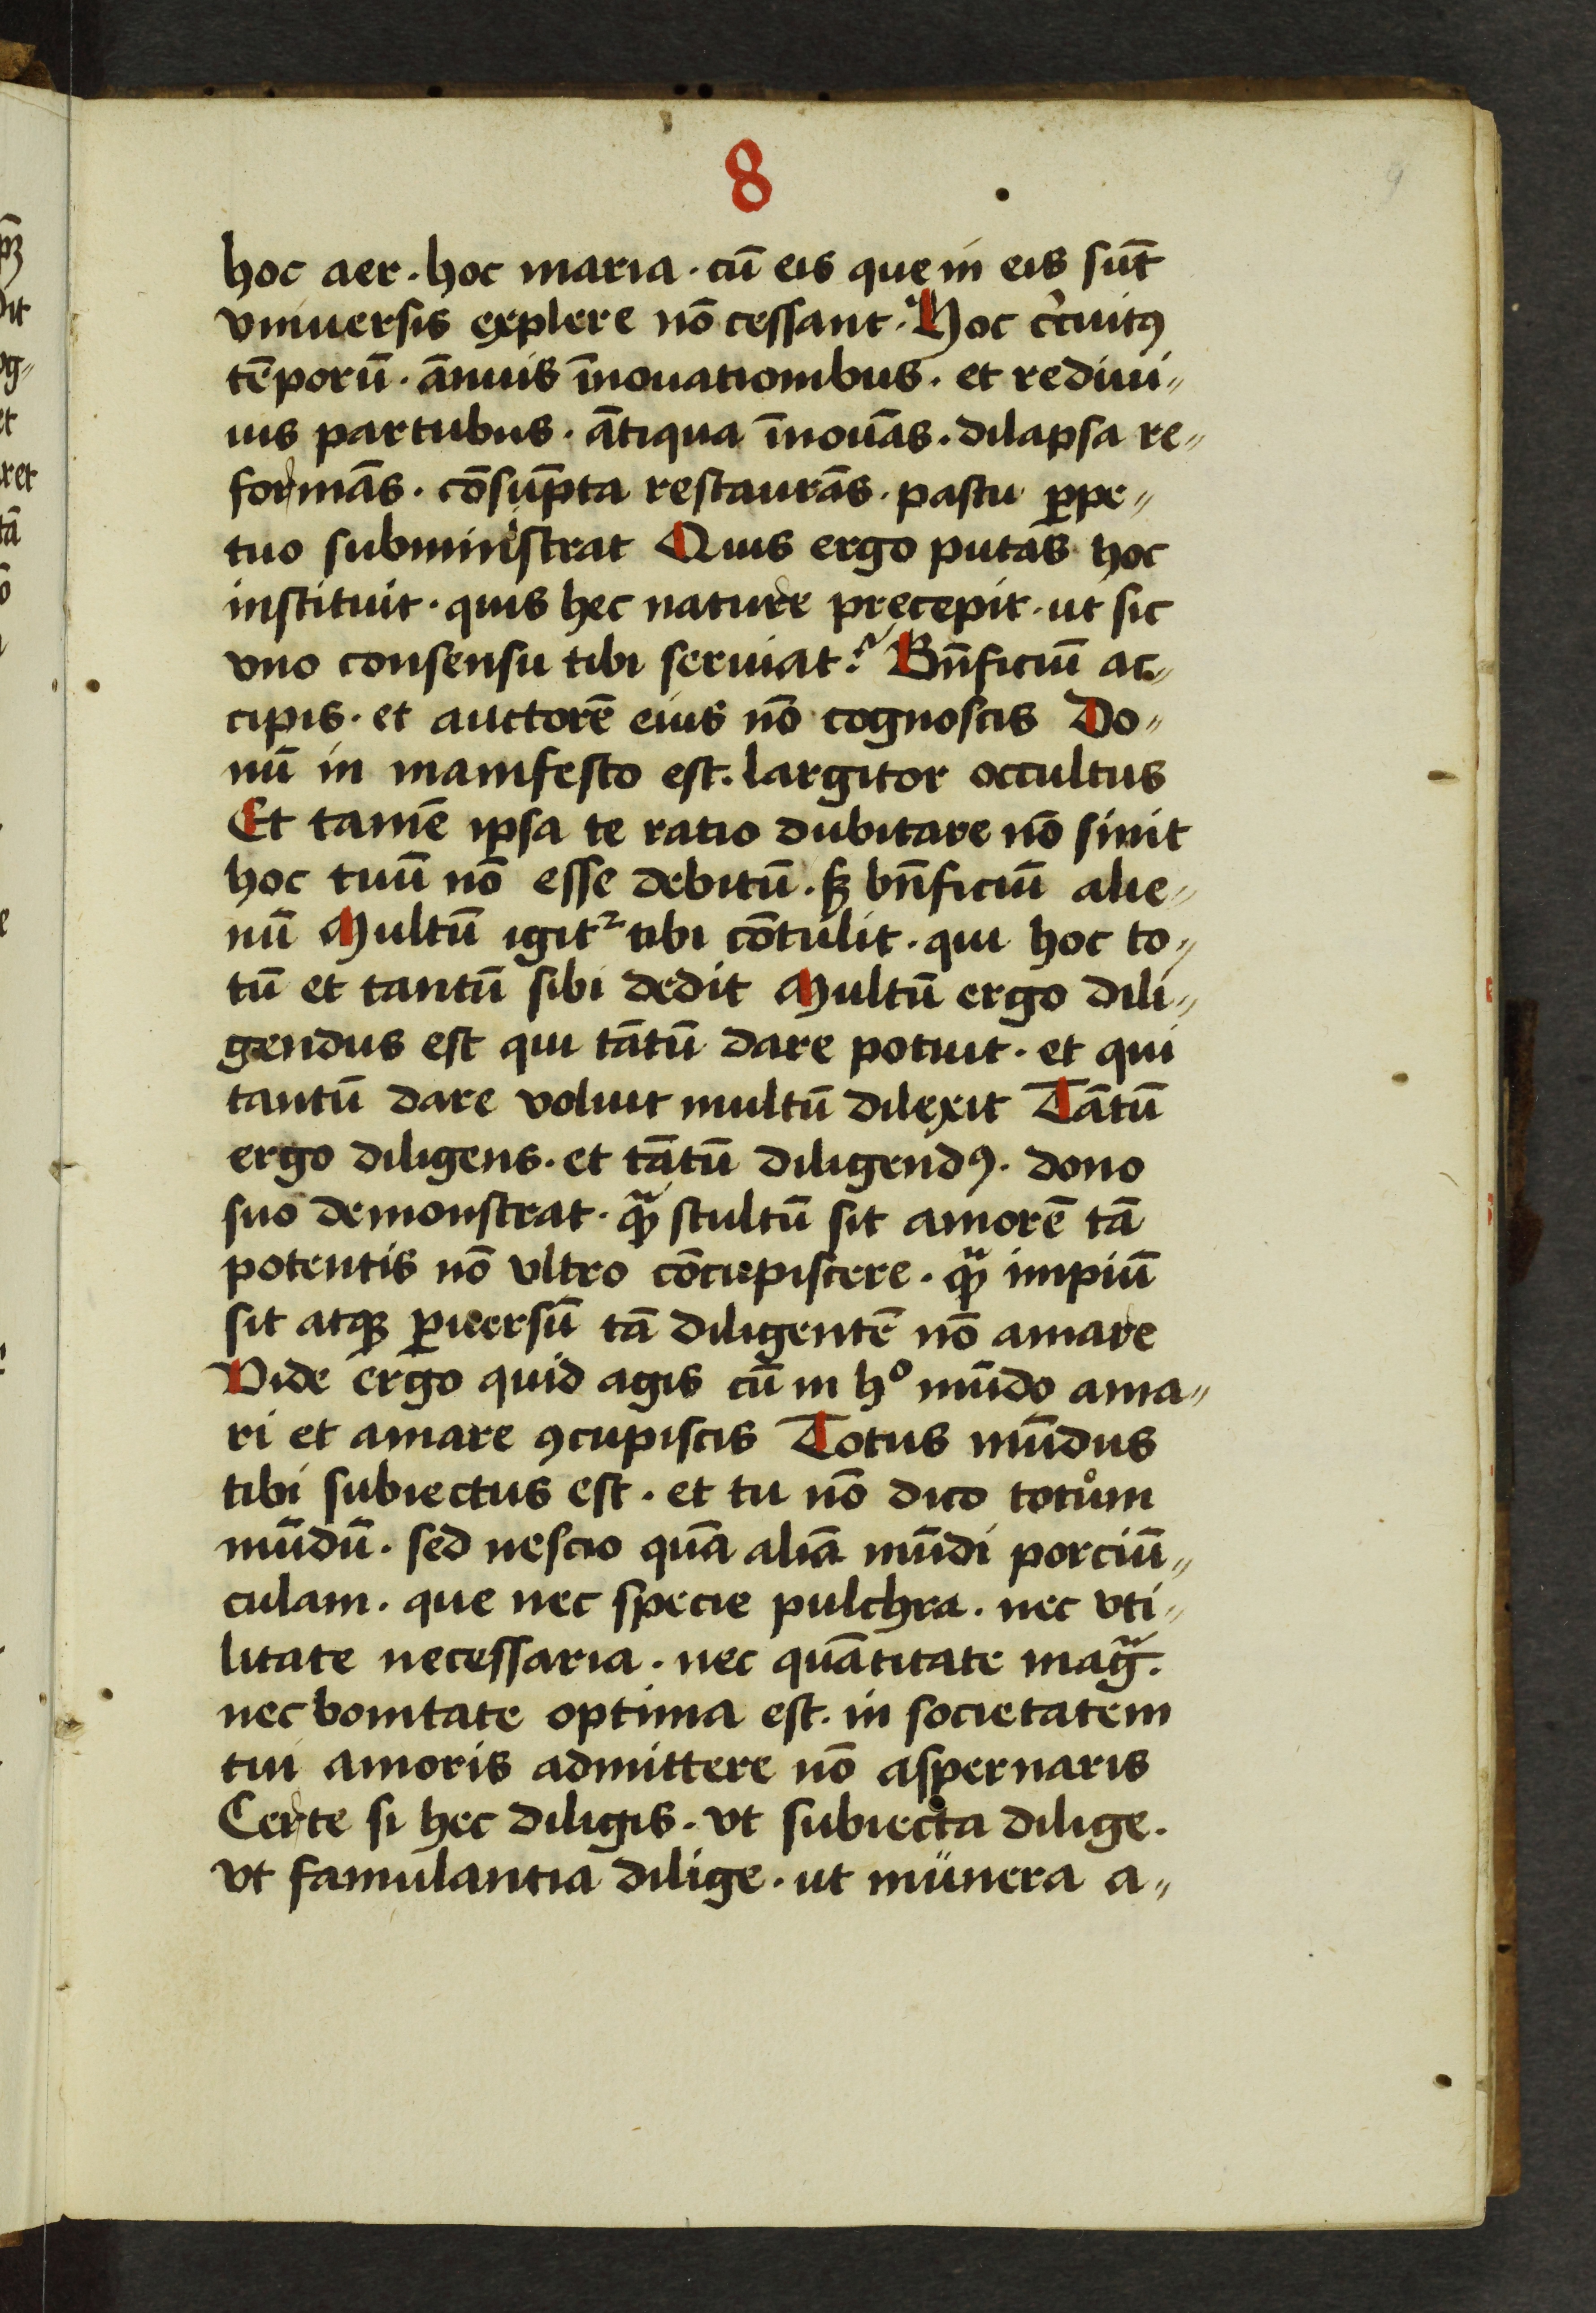 8
9
hoc aer · hoc maria · cū eis que in eis sūt
vniuersis explere nō cessant · Hoc cͥcuitꝰ
tēporū · ānuis īnouationibus · et rediui〃
uis partubus · ātiqua īnouās · dilapsa re〃
formās · cōsūpta restaurās · pastu ꝑpe〃
tuo subministrat Quis ergo putas hoc
instituit · quis hec nature precepit · ut sic
vno consensu tibi seruiat? Bn̄ficiū ac〃
cipis · et auctorē eius nō cognoscis Do〃
nū in manifesto est · largitor occultus
Et tamē ipsa te ratio dubitare nō sinit
hoc tuū nō esse debitū · ſꝫ bn̄ficiū alie〃
nū Multū igit᷑ tibi cōtulit · qui hoc to〃
tū et tantū sibi dedit Multū ergo dili〃
gendus est qui tātū dare potuit · et qui
tantū dare voluit multū dilexit Tātū
ergo diligens · et tātū diligendꝰ · dono
suo demonstrat · qᷓ stultū sit amorē tā
potentis nō vltro cōcupiscere · qᷓ impiū
sit atqꝫ ꝑuersū tā diligentē nō amare
Vide ergo quid agis cū in hͦ mūdo ama〃
ri et amare ꝯcupiscis Totus mūdus
tibi subiectus est · et tu nō dico totům
mūdū · sed nescio quā aliā mūdi porciū〃
culam · que nec specie pulchra · nec vti〃
litate necessaria · nec quātitate magᷓ ·
nec bonitate optima est · in societatem
tui amoris admittere nō aspernaris
Certe si hec diligis · vt subiecta dilige ·
vt famulantia dilige · ut munera a〃